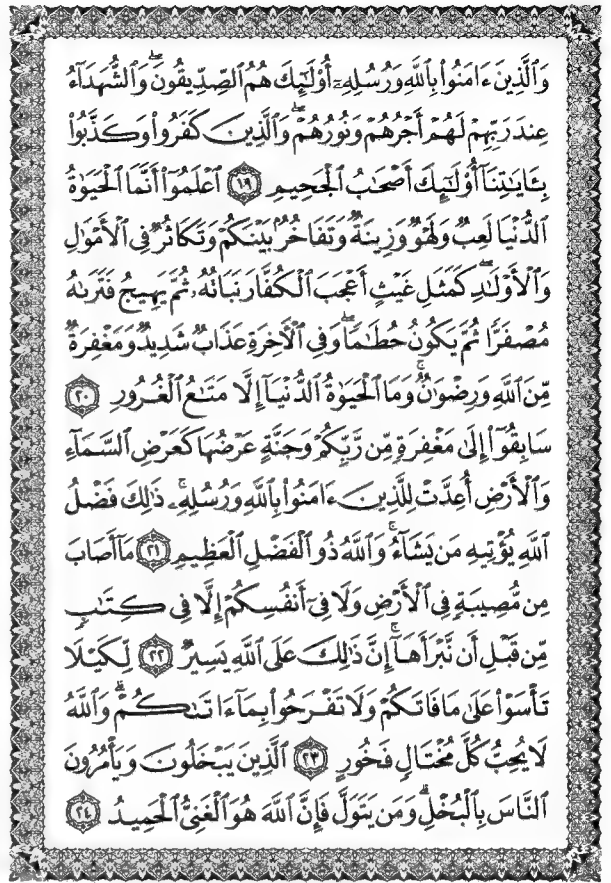 وَٱلَّذِينَ ءَامَنُوا۟ بِٱللَّهِ وَرُسُلِهِۦٓ أُو۟لَٰٓئِكَ هُمُ ٱلصِّدِّيقُونَ ۖ وَٱلشُّهَدَآءُ
عِندَ رَبِّهِمْ لَهُمْ أَجْرُهُمْ وَنُورُهُمْ ۖ وَٱلَّذِينَ كَفَرُوا۟ وَكَذَّبُوا۟
بِـَٔايَٰتِنَآ أُو۟لَٰٓئِكَ أَصْحَٰبُ ٱلْجَحِيمِ ﴿١٩﴾ ٱعْلَمُوٓا۟ أَنَّمَا ٱلْحَيَوٰةُ
ٱلدُّنْيَا لَعِبٌ وَلَهْوٌ وَزِينَةٌ وَتَفَاخُرٌۢ بَيْنَكُمْ وَتَكَاثُرٌ فِى ٱلْأَمْوَٰلِ
وَٱلْأَوْلَٰدِ ۖ كَمَثَلِ غَيْثٍ أَعْجَبَ ٱلْكُفَّارَ نَبَاتُهُۥ ثُمَّ يَهِيجُ فَتَرَىٰهُ
مُصْفَرًّا ثُمَّ يَكُونُ حُطَٰمًا ۖ وَفِى ٱلْءَاخِرَةِ عَذَابٌ شَدِيدٌ وَمَغْفِرَةٌ
مِّنَ ٱللَّهِ وَرِضْوَٰنٌ ۚ وَمَا ٱلْحَيَوٰةُ ٱلدُّنْيَآ إِلَّا مَتَٰعُ ٱلْغُرُورِ ﴿٢٠﴾
سَابِقُوٓا۟ إِلَىٰ مَغْفِرَةٍ مِّن رَّبِّكُمْ وَجَنَّةٍ عَرْضُهَا كَعَرْضِ ٱلسَّمَآءِ
وَٱلْأَرْضِ أُعِدَّتْ لِلَّذِينَ ءَامَنُوا۟ بِٱللَّهِ وَرُسُلِهِۦ ۚ ذَٰلِكَ فَضْلُ
ٱللَّهِ يُؤْتِيهِ مَن يَشَآءُ ۚ وَٱللَّهُ ذُو ٱلْفَضْلِ ٱلْعَظِيمِ ﴿٢١﴾ مَآ أَصَابَ
مِن مُّصِيبَةٍ فِى ٱلْأَرْضِ وَلَا فِىٓ أَنفُسِكُمْ إِلَّا فِى كِتَٰبٍ
مِّن قَبْلِ أَن نَّبْرَأَهَآ ۚ إِنَّ ذَٰلِكَ عَلَى ٱللَّهِ يَسِيرٌ ﴿٢٢﴾ لِّكَيْلَا
تَأْسَوْا۟ عَلَىٰ مَا فَاتَكُمْ وَلَا تَفْرَحُوا۟ بِمَآ ءَاتَىٰكُمْ ۗ وَٱللَّهُ
لَا يُحِبُّ كُلَّ مُخْتَالٍ فَخُورٍ ﴿٢٣﴾ ٱلَّذِينَ يَبْخَلُونَ وَيَأْمُرُونَ
ٱلنَّاسَ بِٱلْبُخْلِ ۗ وَمَن يَتَوَلَّ فَإِنَّ ٱللَّهَ هُوَ ٱلْغَنِىُّ ٱلْحَمِيدُ ﴿٢٤﴾